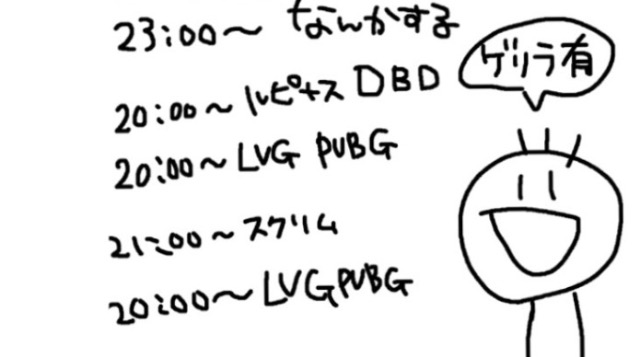 23:00～ なんかする
ゲリラ有
20:00～ ルピナス DBD
20:00～ LVG PUBG
21:00～ スクリム
20:00～ LVG PUBG